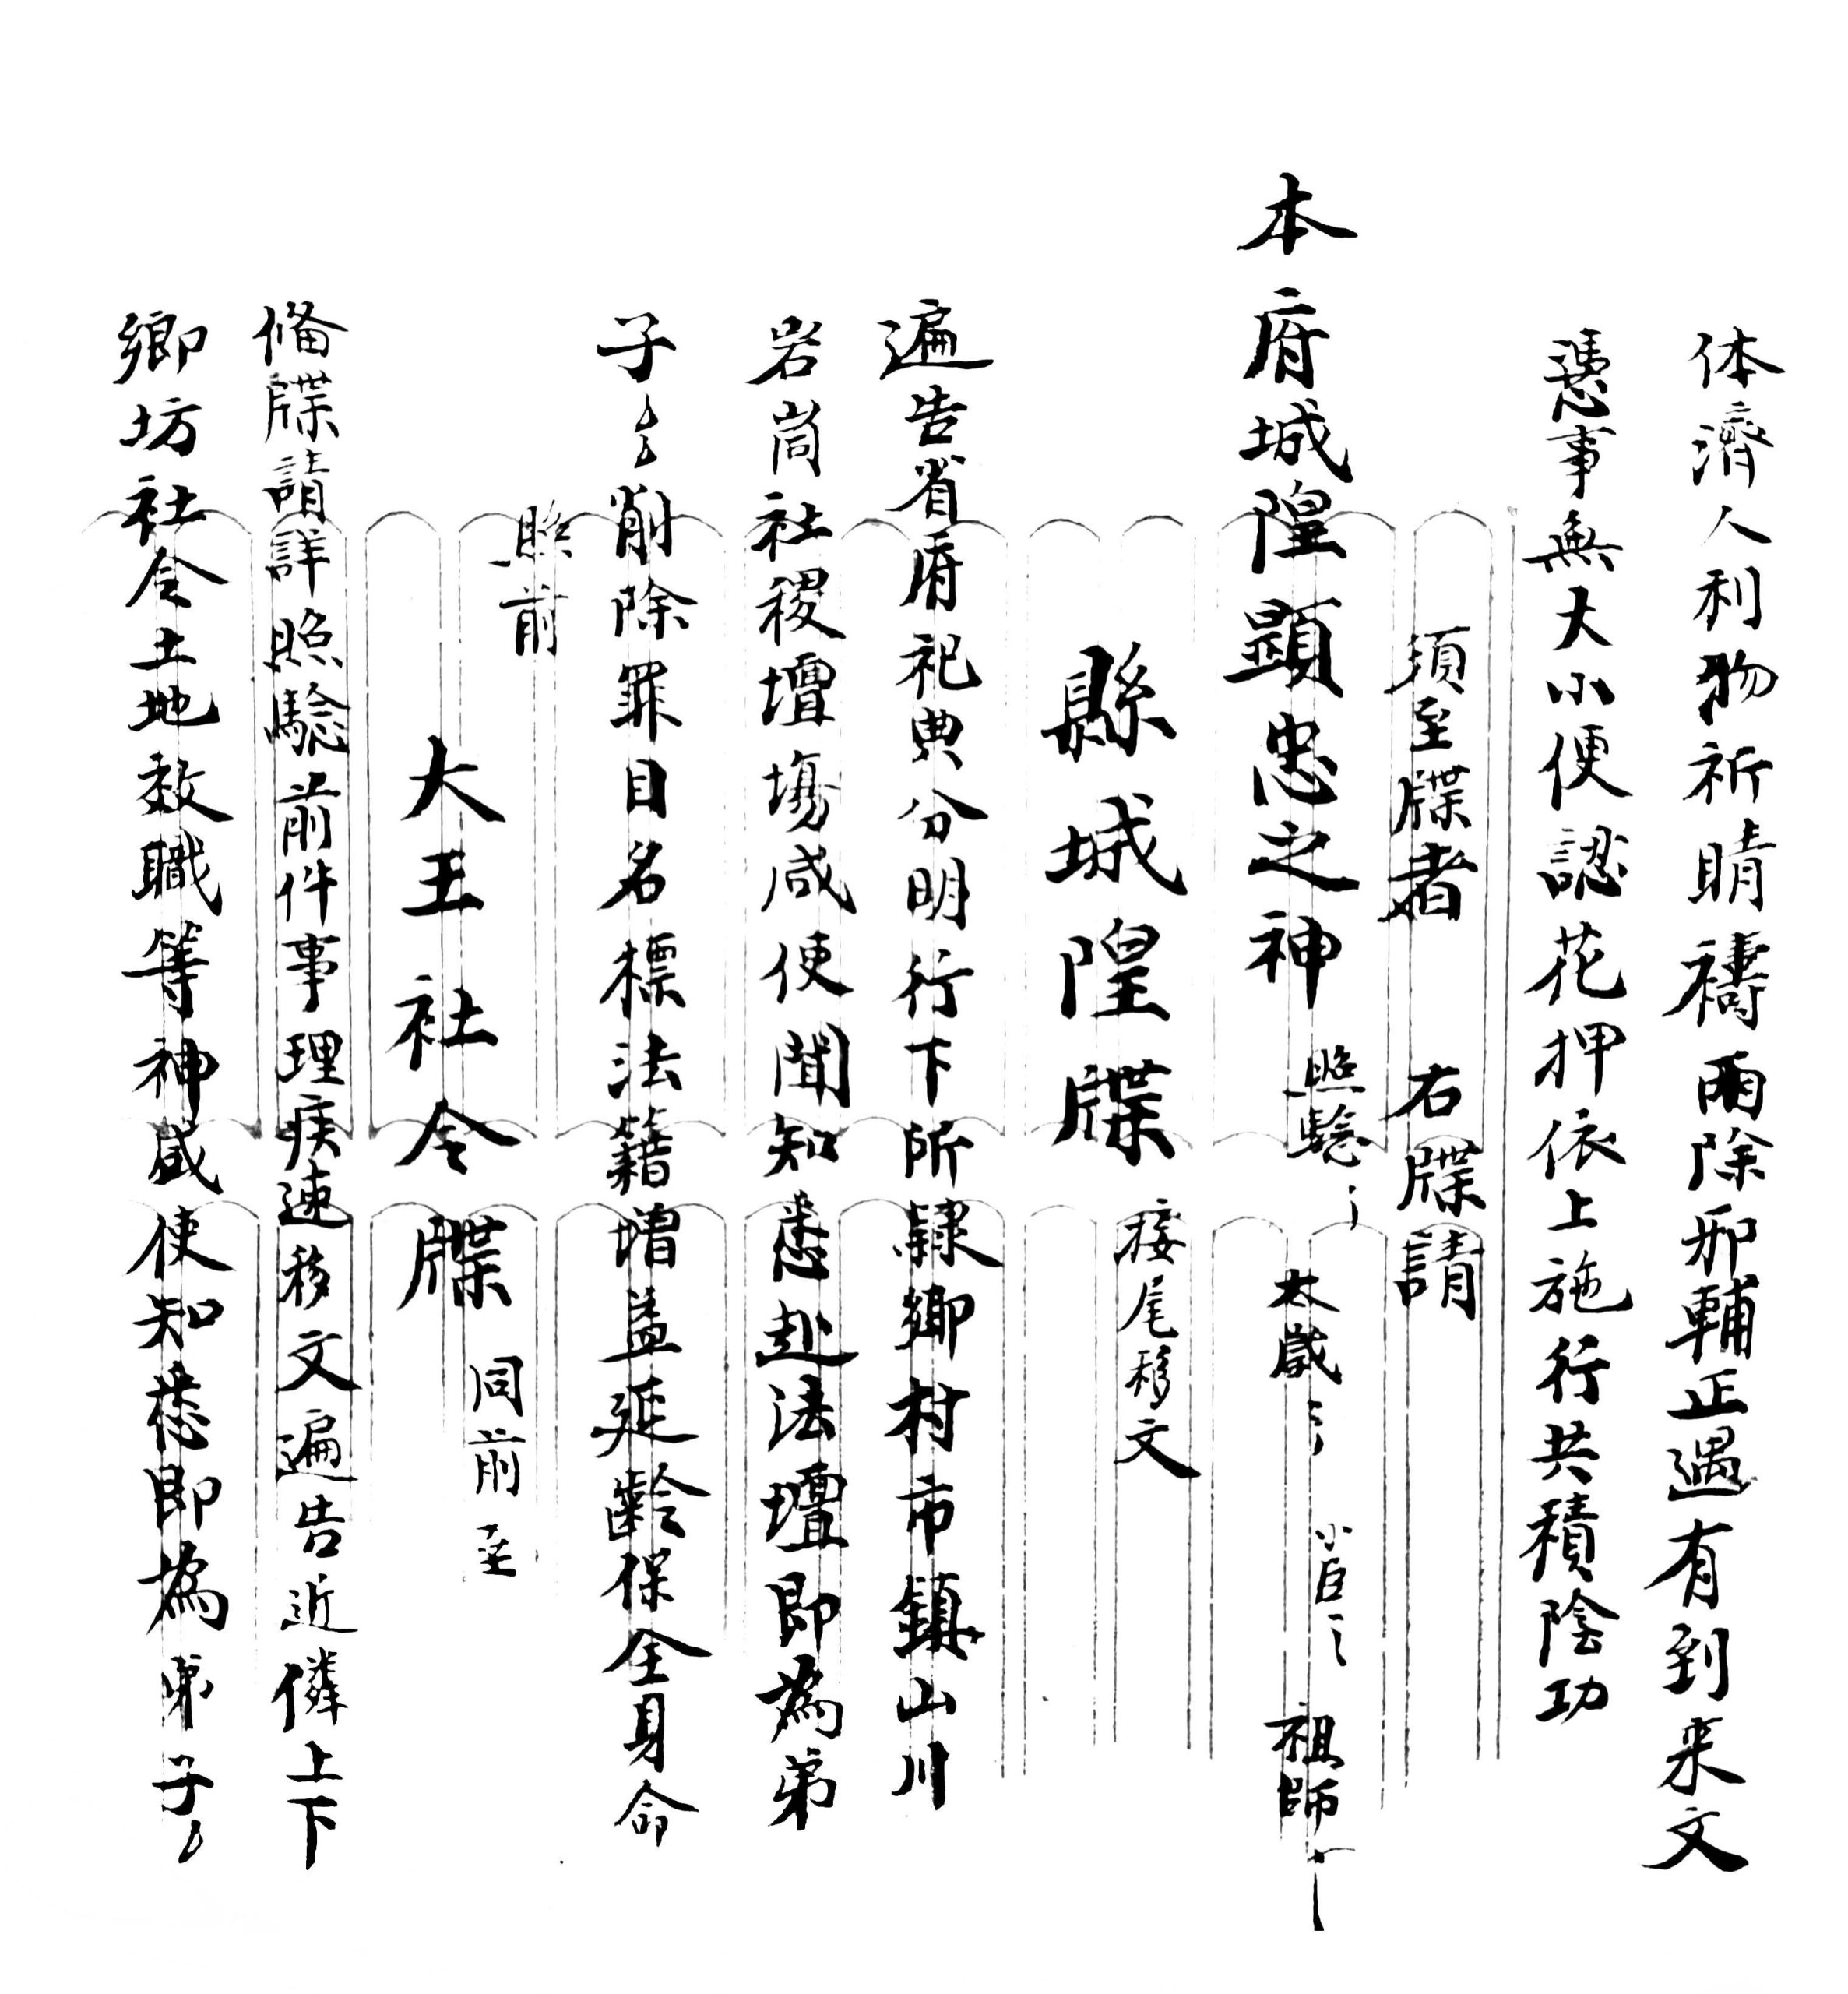 体濟人利物祈晴禱雨除邪輔正遇有到来文
憑事無大小便認花押依上施行共積陰功
須至牒者　右牒請
本府城隍顕忠之神　照驗〻　太歲〻　小臣〻　祖師
縣城隍牒　接尾移文
遍告省府祀典分明行下所隷鄉村市鎮山川
岩崗社稷壇塲咸使聞知悉赴法壇即為弟
子〻削除罪目名標法籍增益延齡保全身命
照前
大王社令牒　同前至
備牒請詳照驗前件事理疾速移文遍告近隣上下
鄉坊社令土地敎職等神咸使知悉即為弟子〻